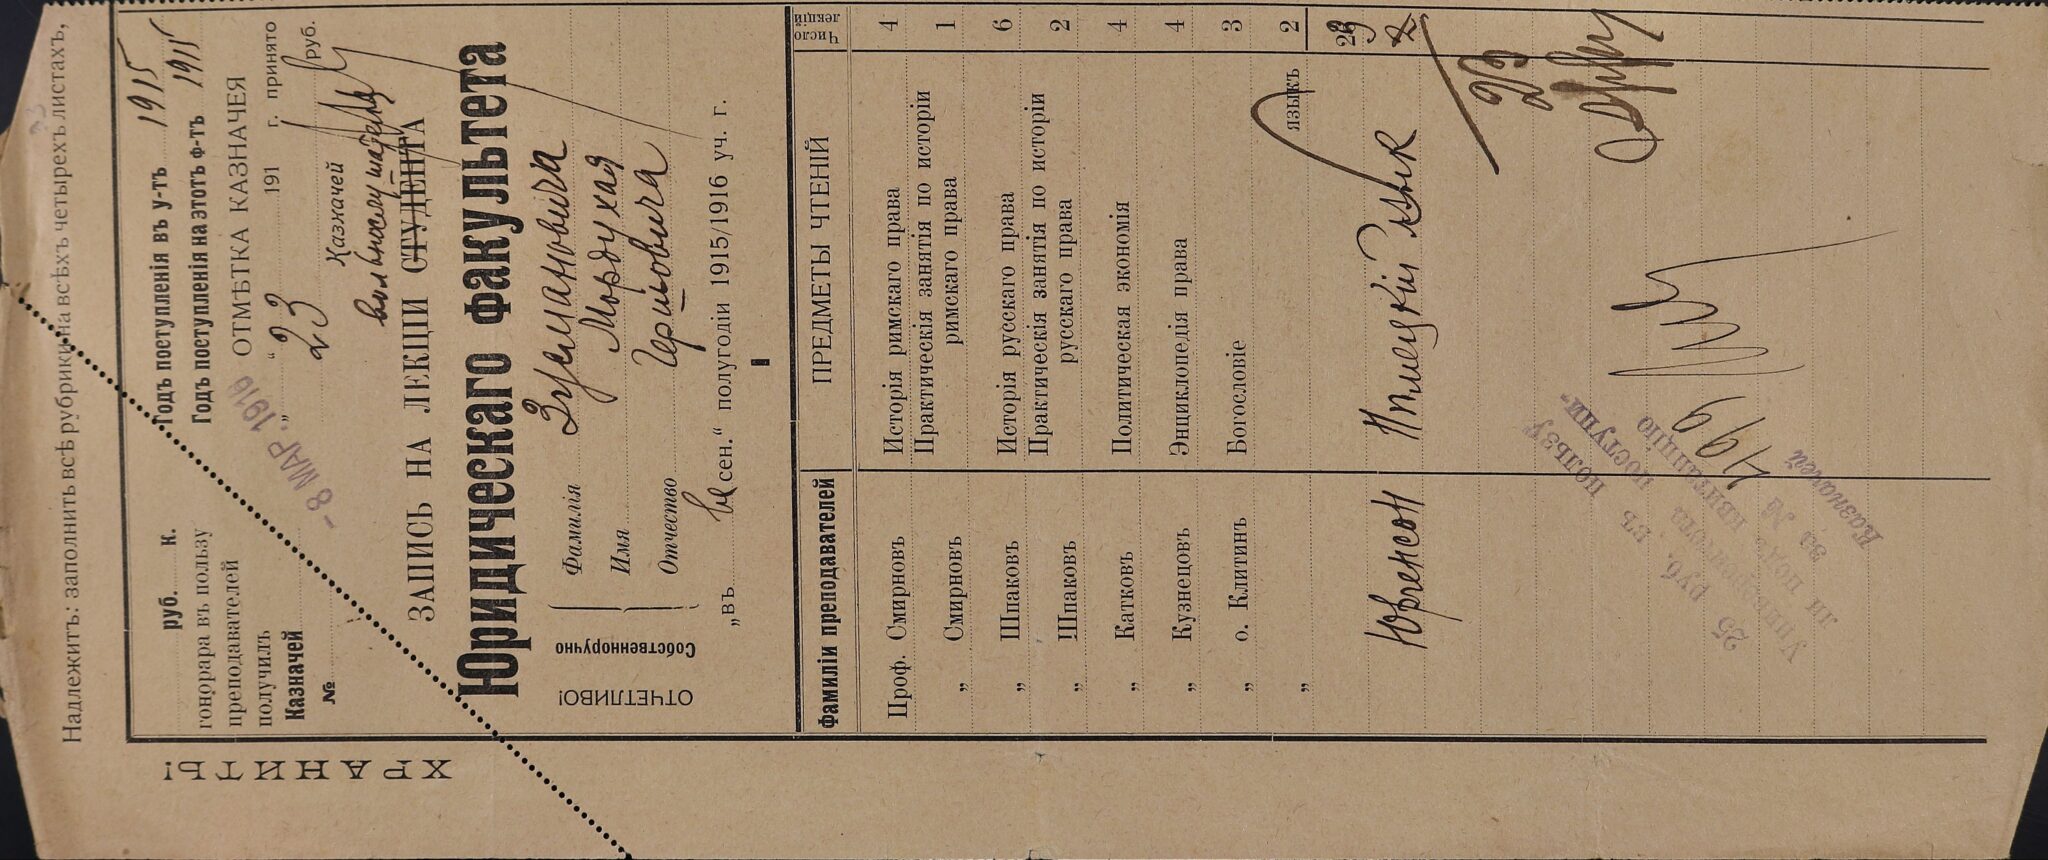 Надлежитъ: заполнить всѣ рубрики на всѣхъ четырехъ листахъ,
ХРАНИТЬ!
руб. к.
гонорара въ пользу
преподавателей
получилъ
Казначей
№
Годъ поступленія въ у-тъ 1915
Годъ поступленія на этотъ ф-тъ 1915
ОТМѢТКА КАЗНАЧЕЯ
„ “ 191 г. принято
23 руб.
Казначей
- 8 МАР. 1916
вольнослушателя
ЗАПИСЬ НА ЛЕКЦІИ СТУДЕНТА
Юридическаго факультета
ОТЧЕТЛИВО!
Собственноручно
Фамилія Зусмановича
Имя Мордухая
Отчество Гершовича
„въ весен.“ полугодіи 1915/1916 уч. г.
Фамиліи преподавателей ПРЕДМЕТЫ ЧТЕНІЙ Число лекцій
Проф. Смирновъ Исторія римскаго права 4
„ Смирновъ Практическія занятія по исторіи римскаго права 1
„ Шпаковъ Исторія русскаго права 6
„ Шпаковъ Практическія занятія по исторіи русскаго права 2
„ Катковъ Политическая экономія 4
„ Кузнецовъ Энциклопедія права 4
„ о. Клитинъ Богословіе 3
„ языкъ 2
Юргенсон Нѣмецкій язык 2
23
25 руб. въ пользу
Университета поступи-
ли подъ квитанцію
за № 499
Казначей